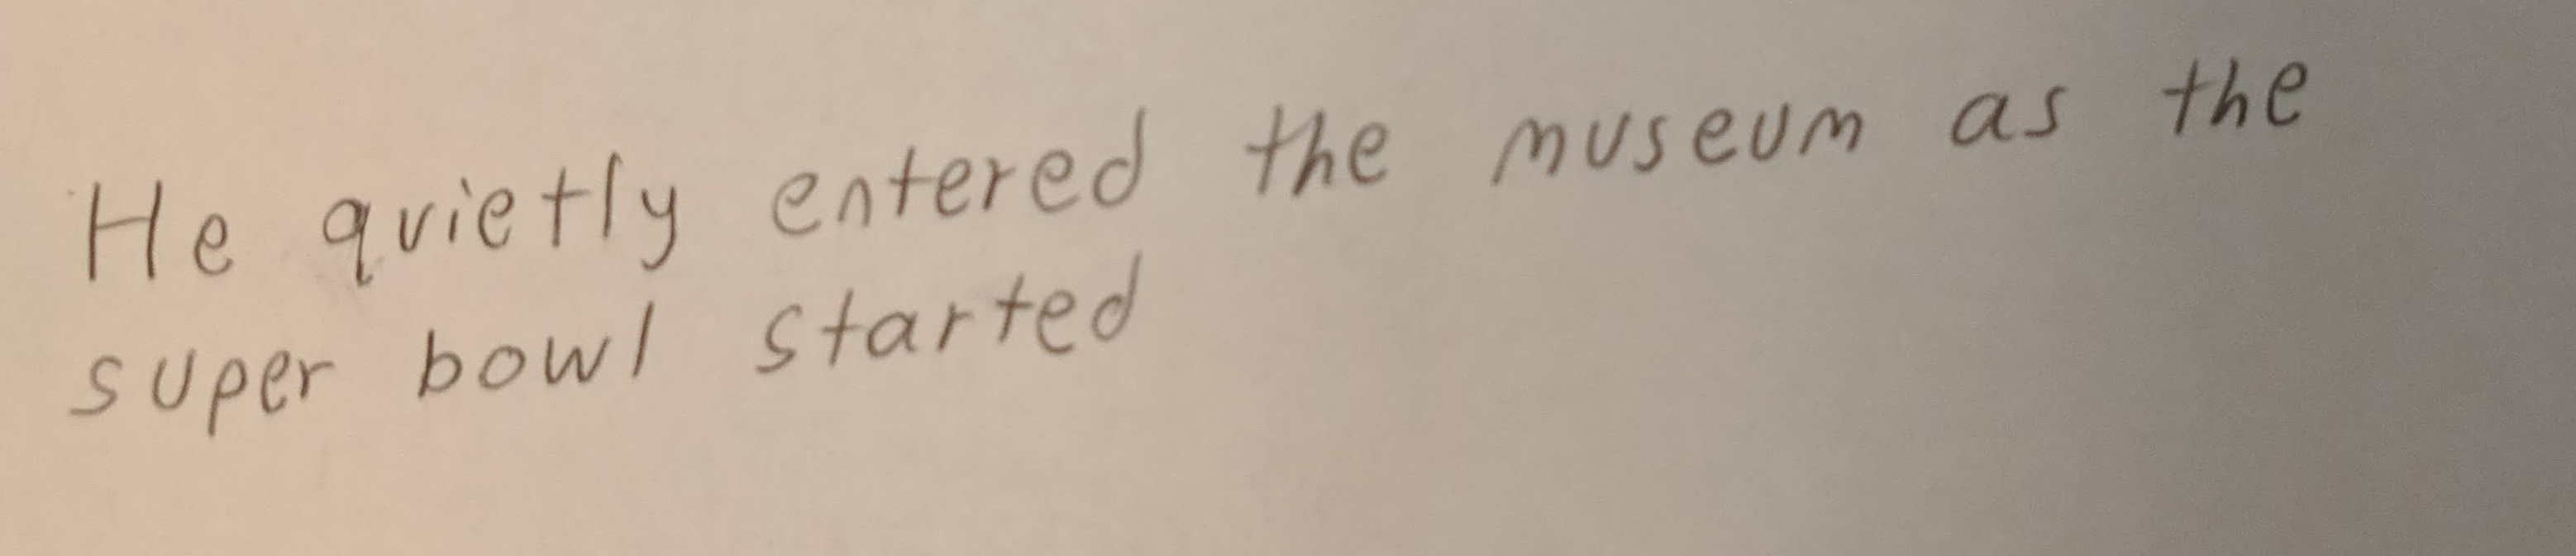 He quietly entered the museum as the
super bowl started